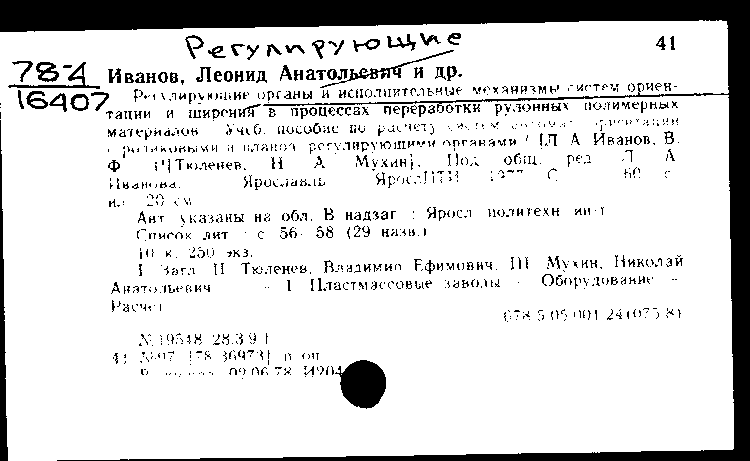 Регулирующие
41
78-4
16407
Иванов, Леонид Анатольевич и др.
Регулирующие органы и исполнительные механизмы систем ориен-
тации и ширения в процессах переработки рулонных полимерных
материалов Учеб. пособие по расчету систем ориентации
с роликовыми и планов регулирующими органами / [Л А Иванов, В.
Ф Тюленев, Н А Мухин]. Под общ. ред Л А
Иванова. Ярославль ЯрослПТИ 1977 С 60 с
ил 20 см
Авт указаны на обл. В надзаг : Яросл политехн ин-т
Список лит : с 56-58 (29 назв.)
10 к. 250 экз.
I Загл II Тюленев, Владимир Ефимович. III Мухин, Николай
Анатольевич - 1 Пластмассовые заводы - Оборудование -
Расчет
678 5 05 001 24(075 8)
№ 19548 28.3 9
№97 [78-36973] п оп
09 06 78